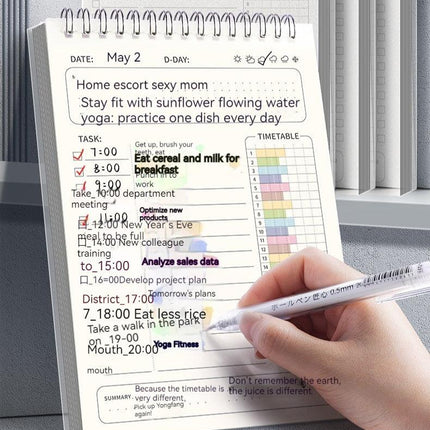 DATE: May 2 D-DAY:
Home escort sexy mom
Stay fit with sunflower flowing water
yoga: practice one dish every day
TASK:
TIMETABLE
7:00 Get up, brush your
teeth, eat
Eat cereal and milk for
breakfast
8:00 Punch in to
work
9:00
Take_10:00 department
meeting
11:00 Optimize new
products
12:00 New Year's Eve
meal to be full
14:00 New colleague
training
to_15:00 Analyze sales data
16=00Develop project plan
Tomorrow's plans
District_17:00
7_18:00 Eat less rice
Take a walk in the park
on_19-00
Mouth_20:00 Yoga Fitness
mouth
SUMMARY
Because the timetable is
very different,
Pick up Yongfang
again!
Don't remember the earth,
the juice is different.
ボールペン匠心 0.5mm